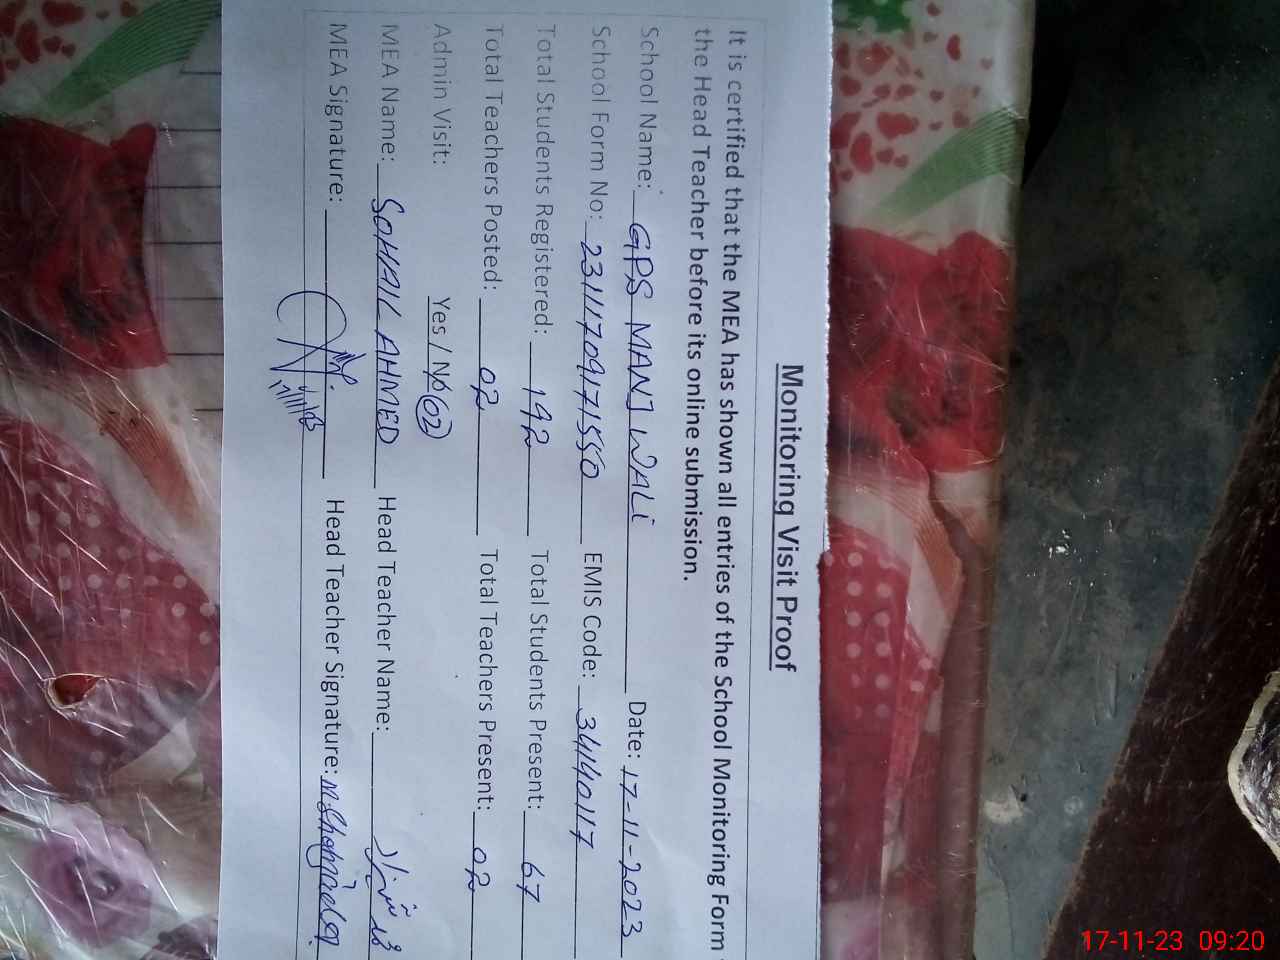 Monitoring Visit Proof
It is certified that the MEA has shown all entries of the School Monitoring Form
the Head Teacher before its online submission.
School Name: GPS MANJ WALI Date: 17-11-2023
School Form No: EMIS Code: 34140117
Total Students Registered: 192 Total Students Present: 67
Total Teachers Posted: 02 Total Teachers Present: 02
Admin Visit: Yes / No 02
MEA Name: SOHAIL AHMED Head Teacher Name:
MEA Signature: Head Teacher Signature:
17-11-23 09:20